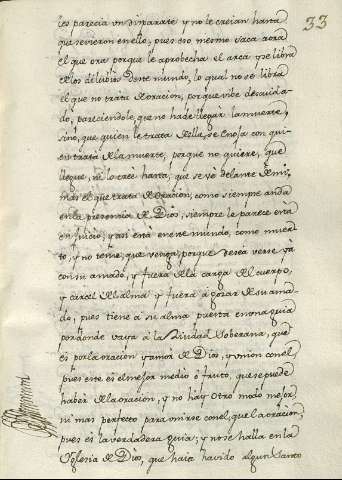 33
les parecia un disparate y no le creian hasta
que se vieron en ello, pues eso mesmo saca aora
el que ora porque le aprobecha el arca y se libra
de los delubios deste mundo, lo qual no se libra
el que no trata de oracion, porque vibe descuida-
do, pareciendole, que no hade llegar la muerte,
sino, que quien le trata della, se enoja con qui-
en trata de la muerte, porque no quiere, que
llegue, ni lo cree hasta, que se vè delante de mi,
mas el que trata de oracion, como siempre anda
en la presencia de Dios, siempre le parece està
en Juicio, y asi està en este mundo, como muer-
to, y no teme, que venga, porque desea verse yà
con su amado, y fuera de la carga del cuerpo,
y carcel del alma y fuera à gozar de su ama-
do, pues tiene à su alma puesta en una guia
por donde vaya à la Ciudad Soberana, que
es por la oracion y amor de Dios, y union con el,
pues este es el mejor medio ò fruto, que se puede
haber de la oracion, y no hay otro modo mejor,
ni mas perfecto para unirse con el, que la oracion,
pues es la verdadera guia; y no se halla en la
Iglesia de Dios, que haia havido algun Santo